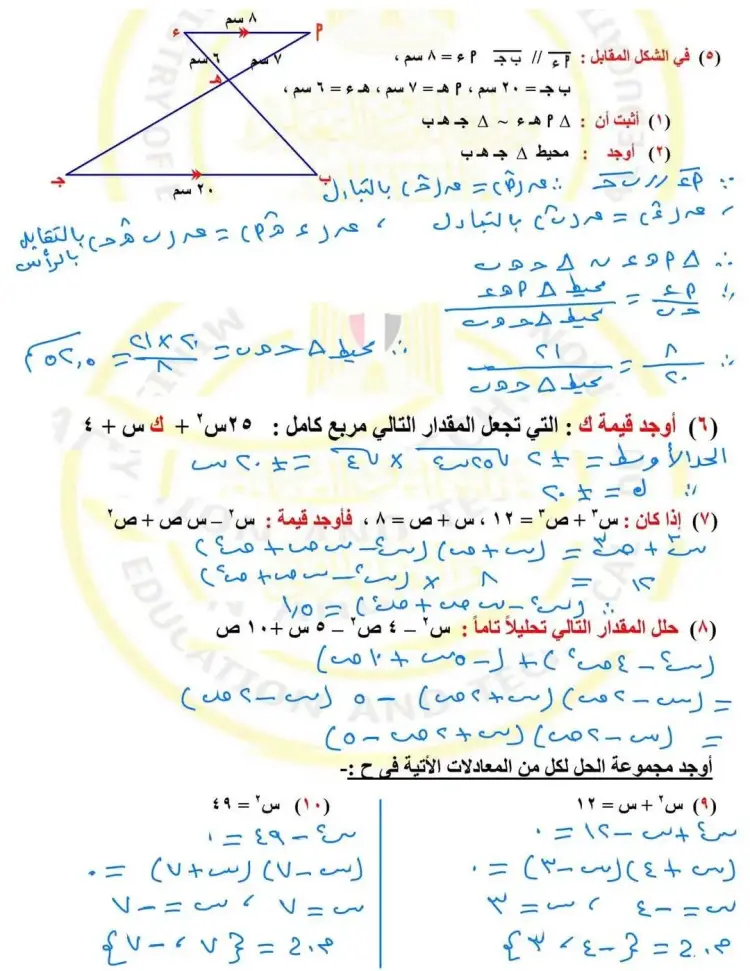 (٥) في الشكل المقابل : أء // ب جـ ، أ ء = ٨ سم ،
ب جـ = ٢٠ سم ، أ هـ = ٧ سم ، هـ ء = ٦ سم ،
(١) أثبت أن : Δ أ هـ ء ~ Δ جـ هـ ب
(٢) أوجد : محيط Δ جـ هـ ب
٨ سم
ء
أ
٦ سم
٧ سم
هـ
جـ
ب
٢٠ سم
∵ أء // ب حـ ∴ ق(أ) = ق(حـ) بالتبادل
، ق(ء) = ق(ب) بالتبادل ، ق(ء هـ أ) = ق(ب هـ حـ) بالتقابل بالرأس
∴ Δ أ هـ ء ~ Δ حـ هـ ب
∴ أء / حـ ب = محيط Δ أ هـ ء / محيط Δ حـ هـ ب
∴ ٨ / ٢٠ = ٢١ / محيط Δ حـ هـ ب ∴ محيط Δ حـ هـ ب = ٢٠ × ٢١ / ٨ = ٥٢,٥ سم
(٦) أوجد قيمة ك : التي تجعل المقدار التالي مربع كامل : ٢٥س٢ + ك س + ٤
الحد الأوسط = ± ٢ √٢٥س٢ × √٤ = ± ٢٠ س
∴ ك = ± ٢٠
(٧) إذا كان : س٣ + ص٣ = ١٢ ، س + ص = ٨ ، فأوجد قيمة : س٢ – س ص + ص٢
س٣ + ص٣ = (س + ص) (س٢ – س ص + ص٢)
١٢ = ٨ × (س٢ – س ص + ص٢)
∴ (س٢ – س ص + ص٢) = ١,٥
(٨) حلل المقدار التالي تحليلاً تاماً : س٢ – ٤ ص٢ – ٥ س + ١٠ ص
(س٢ – ٤ص٢) + (– ٥س + ١٠ص)
= (س – ٢ص) (س + ٢ص) – ٥ (س – ٢ص)
= (س – ٢ص) (س + ٢ص – ٥)
أوجد مجموعة الحل لكل من المعادلات الأتية فى ح :-
(٩) س٢ + س = ١٢
س٢ + س – ١٢ = ٠
(س + ٤) (س – ٣) = ٠
س = – ٤ ، س = ٣
م.ح = {– ٤ ، ٣}
(١٠) س٢ = ٤٩
س٢ – ٤٩ = ٠
(س – ٧) (س + ٧) = ٠
س = ٧ ، س = – ٧
م.ح = {٧ ، – ٧}